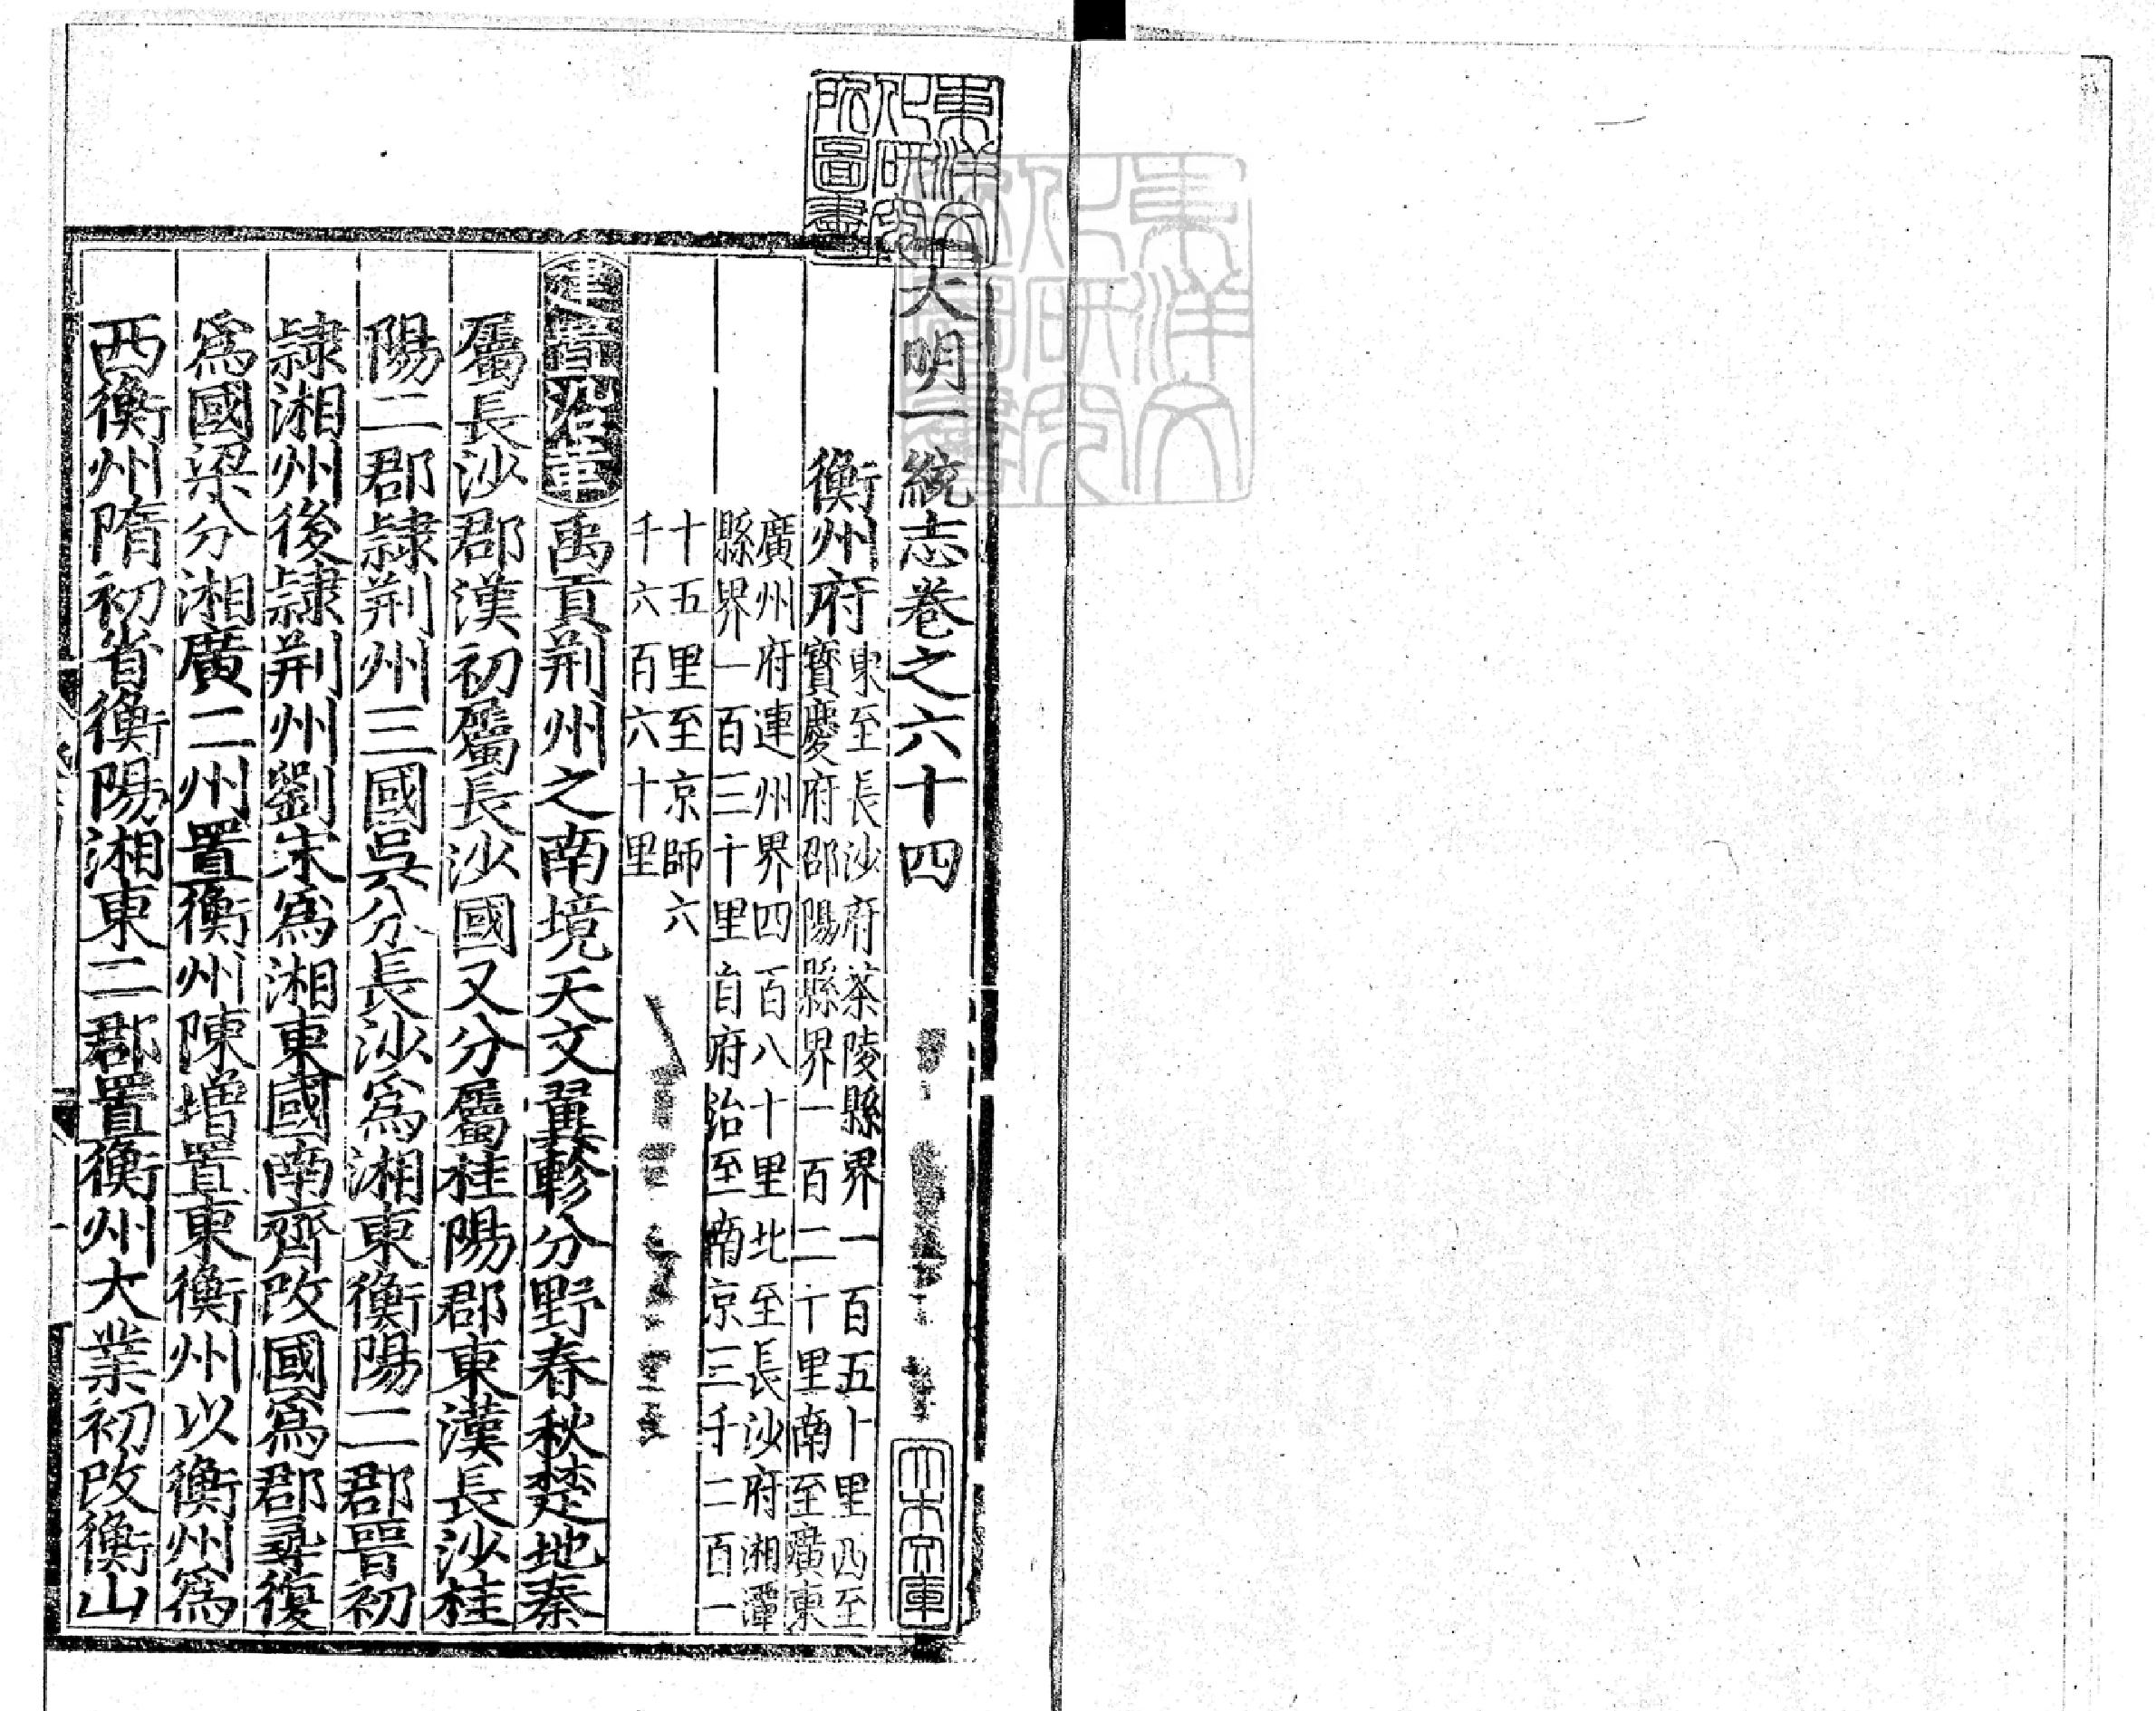 大明一統志卷之六十四
衡州府
東至長沙府茶陵縣界一百五十里西至
寳慶府邵陽縣界一百二十里南至廣東
廣州府連州界四百八十里北至長沙府湘潭
縣界一百三十里自府治至南京三千二百一
十五里至京師六
千六百六十里
建置沿革禹貢荆州之南境天文翼軫分野春秋楚地秦
屬長沙郡漢初屬長沙國又分屬桂陽郡東漢長沙桂
陽二郡隷荆州三國吳分長沙爲湘東衡陽二郡晉初
隷湘州後隷荆州劉宋爲湘東國南齊改國爲郡尋復
爲國梁分湘廣二州置衡州陳增置東衡州以衡州爲
西衡州隋初省衡陽湘東二郡置衡州大業初改衡山
東洋文化研究所圖書
東洋文化研究所圖書
大木文庫